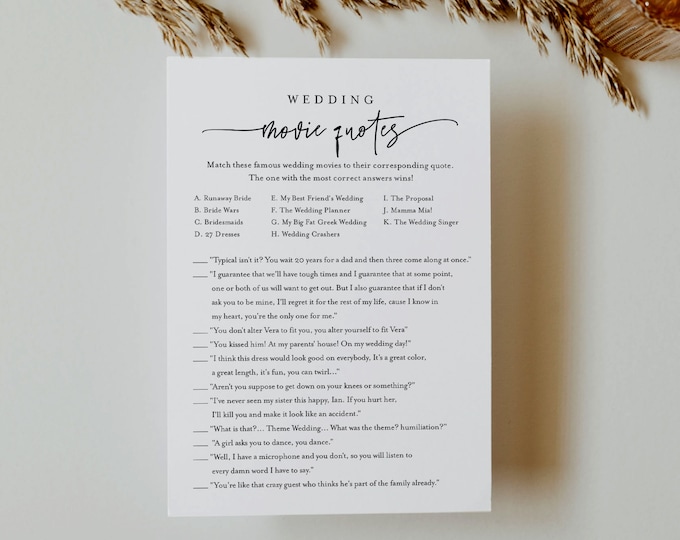 WEDDING
movie quotes
Match these famous wedding movies to their corresponding quote.
The one with the most correct answers wins!
A. Runaway Bride E. My Best Friend's Wedding I. The Proposal
B. Bride Wars F. The Wedding Planner J. Mamma Mia!
C. Bridesmaids G. My Big Fat Greek Wedding K. The Wedding Singer
D. 27 Dresses H. Wedding Crashers
___ "Typical isn't it? You wait 20 years for a dad and then three come along at once."
___ "I guarantee that we'll have tough times and I guarantee that at some point,
one or both of us will want to get out. But I also guarantee that if I don't
ask you to be mine, I'll regret it for the rest of my life, cause I know in
my heart, you're the only one for me."
___ "You don't alter Vera to fit you, you alter yourself to fit Vera"
___ "You kissed him! At my parents' house! On my wedding day!"
___ "I think this dress would look good on everybody, It's a great color,
a great length, it's fun, you can twirl..."
___ "Aren't you suppose to get down on your knees or something?"
___ "I've never seen my sister this happy, Ian. If you hurt her,
I'll kill you and make it look like an accident."
___ "What is that?... Theme Wedding... What was the theme? humiliation?"
___ "A girl asks you to dance, you dance."
___ "Well, I have a microphone and you don't, so you will listen to
every damn word I have to say."
___ "You're like that crazy guest who thinks he's part of the family already."